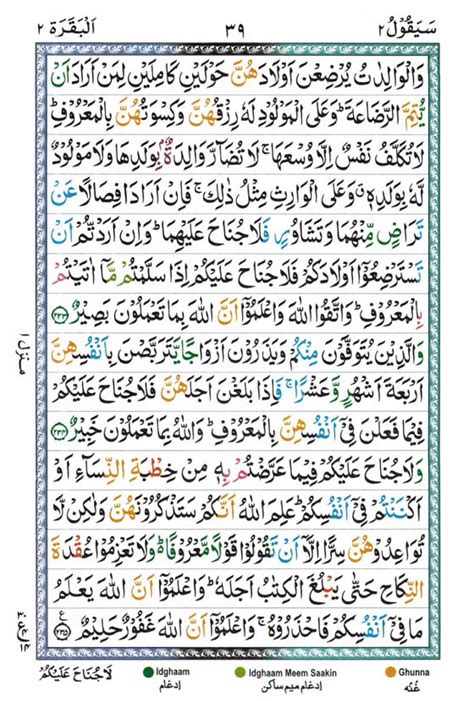 سَيَقُوۡلُ ٢ ٣٩ اَلۡبَقَرَة ٢
وَالۡوَالِدٰتُ يُرۡضِعۡنَ اَوۡلَادَهُنَّ حَوۡلَيۡنِ كَامِلَيۡنِ لِمَنۡ اَرَادَ اَنۡ
يُّتِمَّ الرَّضَاعَةَ ؕ وَعَلَى الۡمَوۡلُوۡدِ لَهٗ رِزۡقُهُنَّ وَكِسۡوَتُهُنَّ بِالۡمَعۡرُوۡفِ ؕ
لَا تُكَلَّفُ نَفۡسٌ اِلَّا وُسۡعَهَا ۚ لَا تُضَآرَّ وَالِدَةٌۢ بِوَلَدِهَا وَلَا مَوۡلُوۡدٌ
لَّهٗ بِوَلَدِهٖ ۗ وَعَلَى الۡوَارِثِ مِثۡلُ ذٰلِكَ ۚ فَاِنۡ اَرَادَا فِصَالًا عَنۡ
تَرَاضٍ مِّنۡهُمَا وَتَشَاوُرٍ فَلَا جُنَاحَ عَلَيۡهِمَا ؕ وَاِنۡ اَرَدۡتُّمۡ اَنۡ
تَسۡتَرۡضِعُوۡٓا اَوۡلَادَكُمۡ فَلَا جُنَاحَ عَلَيۡكُمۡ اِذَا سَلَّمۡتُمۡ مَّآ اٰتَيۡتُمۡ
بِالۡمَعۡرُوۡفِ ؕ وَاتَّقُوا اللّٰهَ وَاعۡلَمُوۡٓا اَنَّ اللّٰهَ بِمَا تَعۡمَلُوۡنَ بَصِيۡرٌ ٢٣٣
وَالَّذِيۡنَ يُتَوَفَّوۡنَ مِنۡكُمۡ وَيَذَرُوۡنَ اَزۡوَاجًا يَّتَرَبَّصۡنَ بِاَنۡفُسِهِنَّ
اَرۡبَعَةَ اَشۡهُرٍ وَّعَشۡرًا ۚ فَاِذَا بَلَغۡنَ اَجَلَهُنَّ فَلَا جُنَاحَ عَلَيۡكُمۡ
فِيۡمَا فَعَلۡنَ فِيۡٓ اَنۡفُسِهِنَّ بِالۡمَعۡرُوۡفِ ؕ وَاللّٰهُ بِمَا تَعۡمَلُوۡنَ خَبِيۡرٌ ٢٣٤
وَلَا جُنَاحَ عَلَيۡكُمۡ فِيۡمَا عَرَّضۡتُمۡ بِهٖ مِنۡ خِطۡبَةِ النِّسَآءِ اَوۡ
اَكۡنَنۡتُمۡ فِيۡٓ اَنۡفُسِكُمۡ ؕ عَلِمَ اللّٰهُ اَنَّكُمۡ سَتَذۡكُرُوۡنَهُنَّ وَلٰكِنۡ لَّا
تُوَاعِدُوۡهُنَّ سِرًّا اِلَّآ اَنۡ تَقُوۡلُوۡا قَوۡلًا مَّعۡرُوۡفًا ؕ وَلَا تَعۡزِمُوۡا عُقۡدَةَ
النِّكَاحِ حَتّٰى يَبۡلُغَ الۡكِتٰبُ اَجَلَهٗ ؕ وَاعۡلَمُوۡٓا اَنَّ اللّٰهَ يَعۡلَمُ
مَا فِيۡٓ اَنۡفُسِكُمۡ فَاحۡذَرُوۡهُ ۚ وَاعۡلَمُوۡٓا اَنَّ اللّٰهَ غَفُوۡرٌ حَلِيۡمٌ ٢٣٥
منزل ١
لَا جُنَاحَ عَلَيۡكُمۡ
Idghaam
ادغام
Idghaam Meem Saakin
ادغام میم ساکن
Ghunna
غُنّه